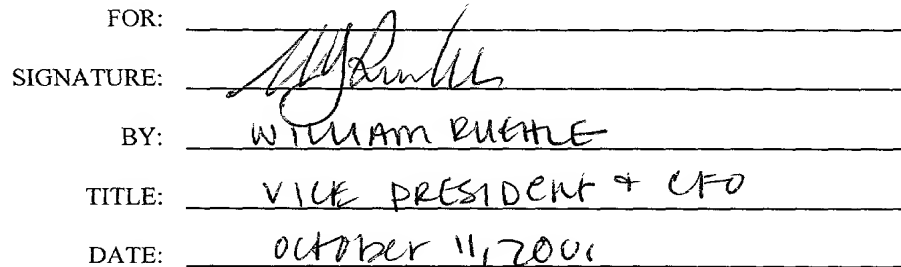 FOR:
SIGNATURE:
BY: WILLIAM RUEHLE
TITLE: VICE PRESIDENT + CFO
DATE: October 11,